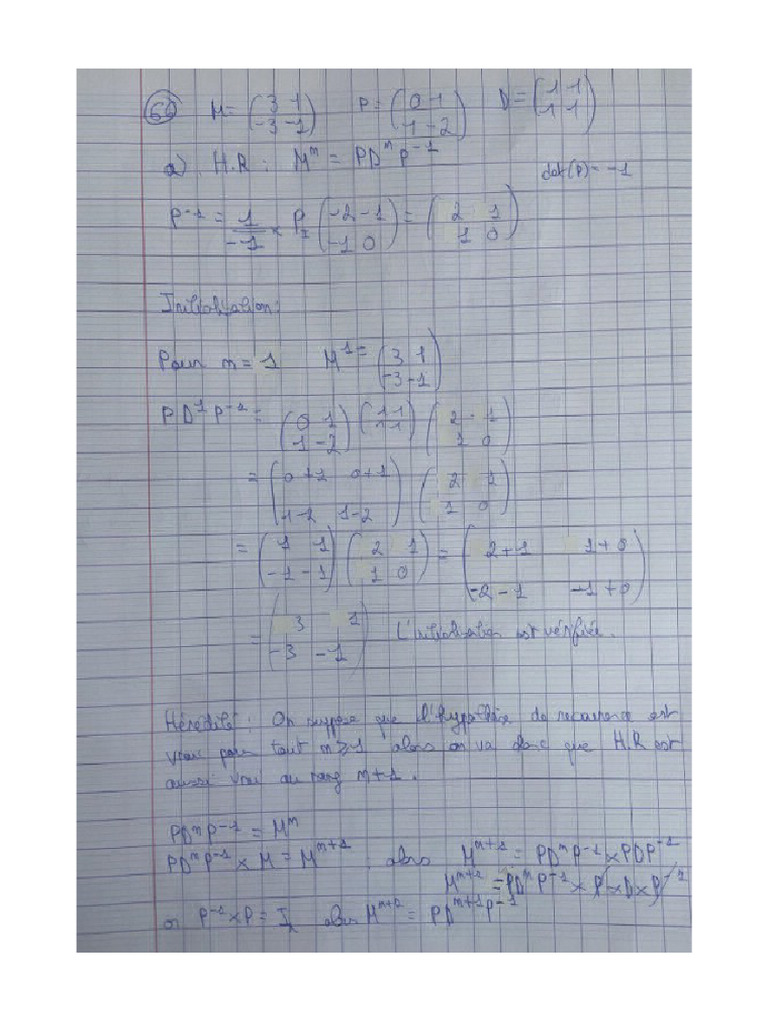 60 M = (3 1 / -3 -1) P = (0 1 / 1 -2) D = (1 1 / 1 1)
a) H.R : M^n = PD^n P^-1 det(P) = -1
P^-1 = 1/-1 × (-2 -1 / -1 0) = (2 1 / 1 0)
Initialisation :
Pour n = 1 M^1 = (3 1 / -3 -1)
PD^1 P^-1 = (0 1 / 1 -2) (1 1 / 1 1) (2 1 / 1 0)
= (0+1 0+1 / 1-2 1-2) (2 1 / 1 0)
= (1 1 / -1 -1) (2 1 / 1 0) = (2+1 1+0 / -2-1 -1+0)
= (3 1 / -3 -1) L'initialisation est vérifiée.
Hérédité : On suppose que l'hypothèse de recurrence est
vraie pour tout n ≥ 1 alors on va donc que H.R est
aussi vrai au rang n+1.
PD^n P^-1 = M^n
PD^n P^-1 × M = M^n+1 ; alors M^n+1 = PD^n P^-1 × PDP^-1
M^n+1 = PD^n P^-1 × P × D × P^-1
or P^-1 × P = I alors M^n+1 = PD^n+1 P^-1